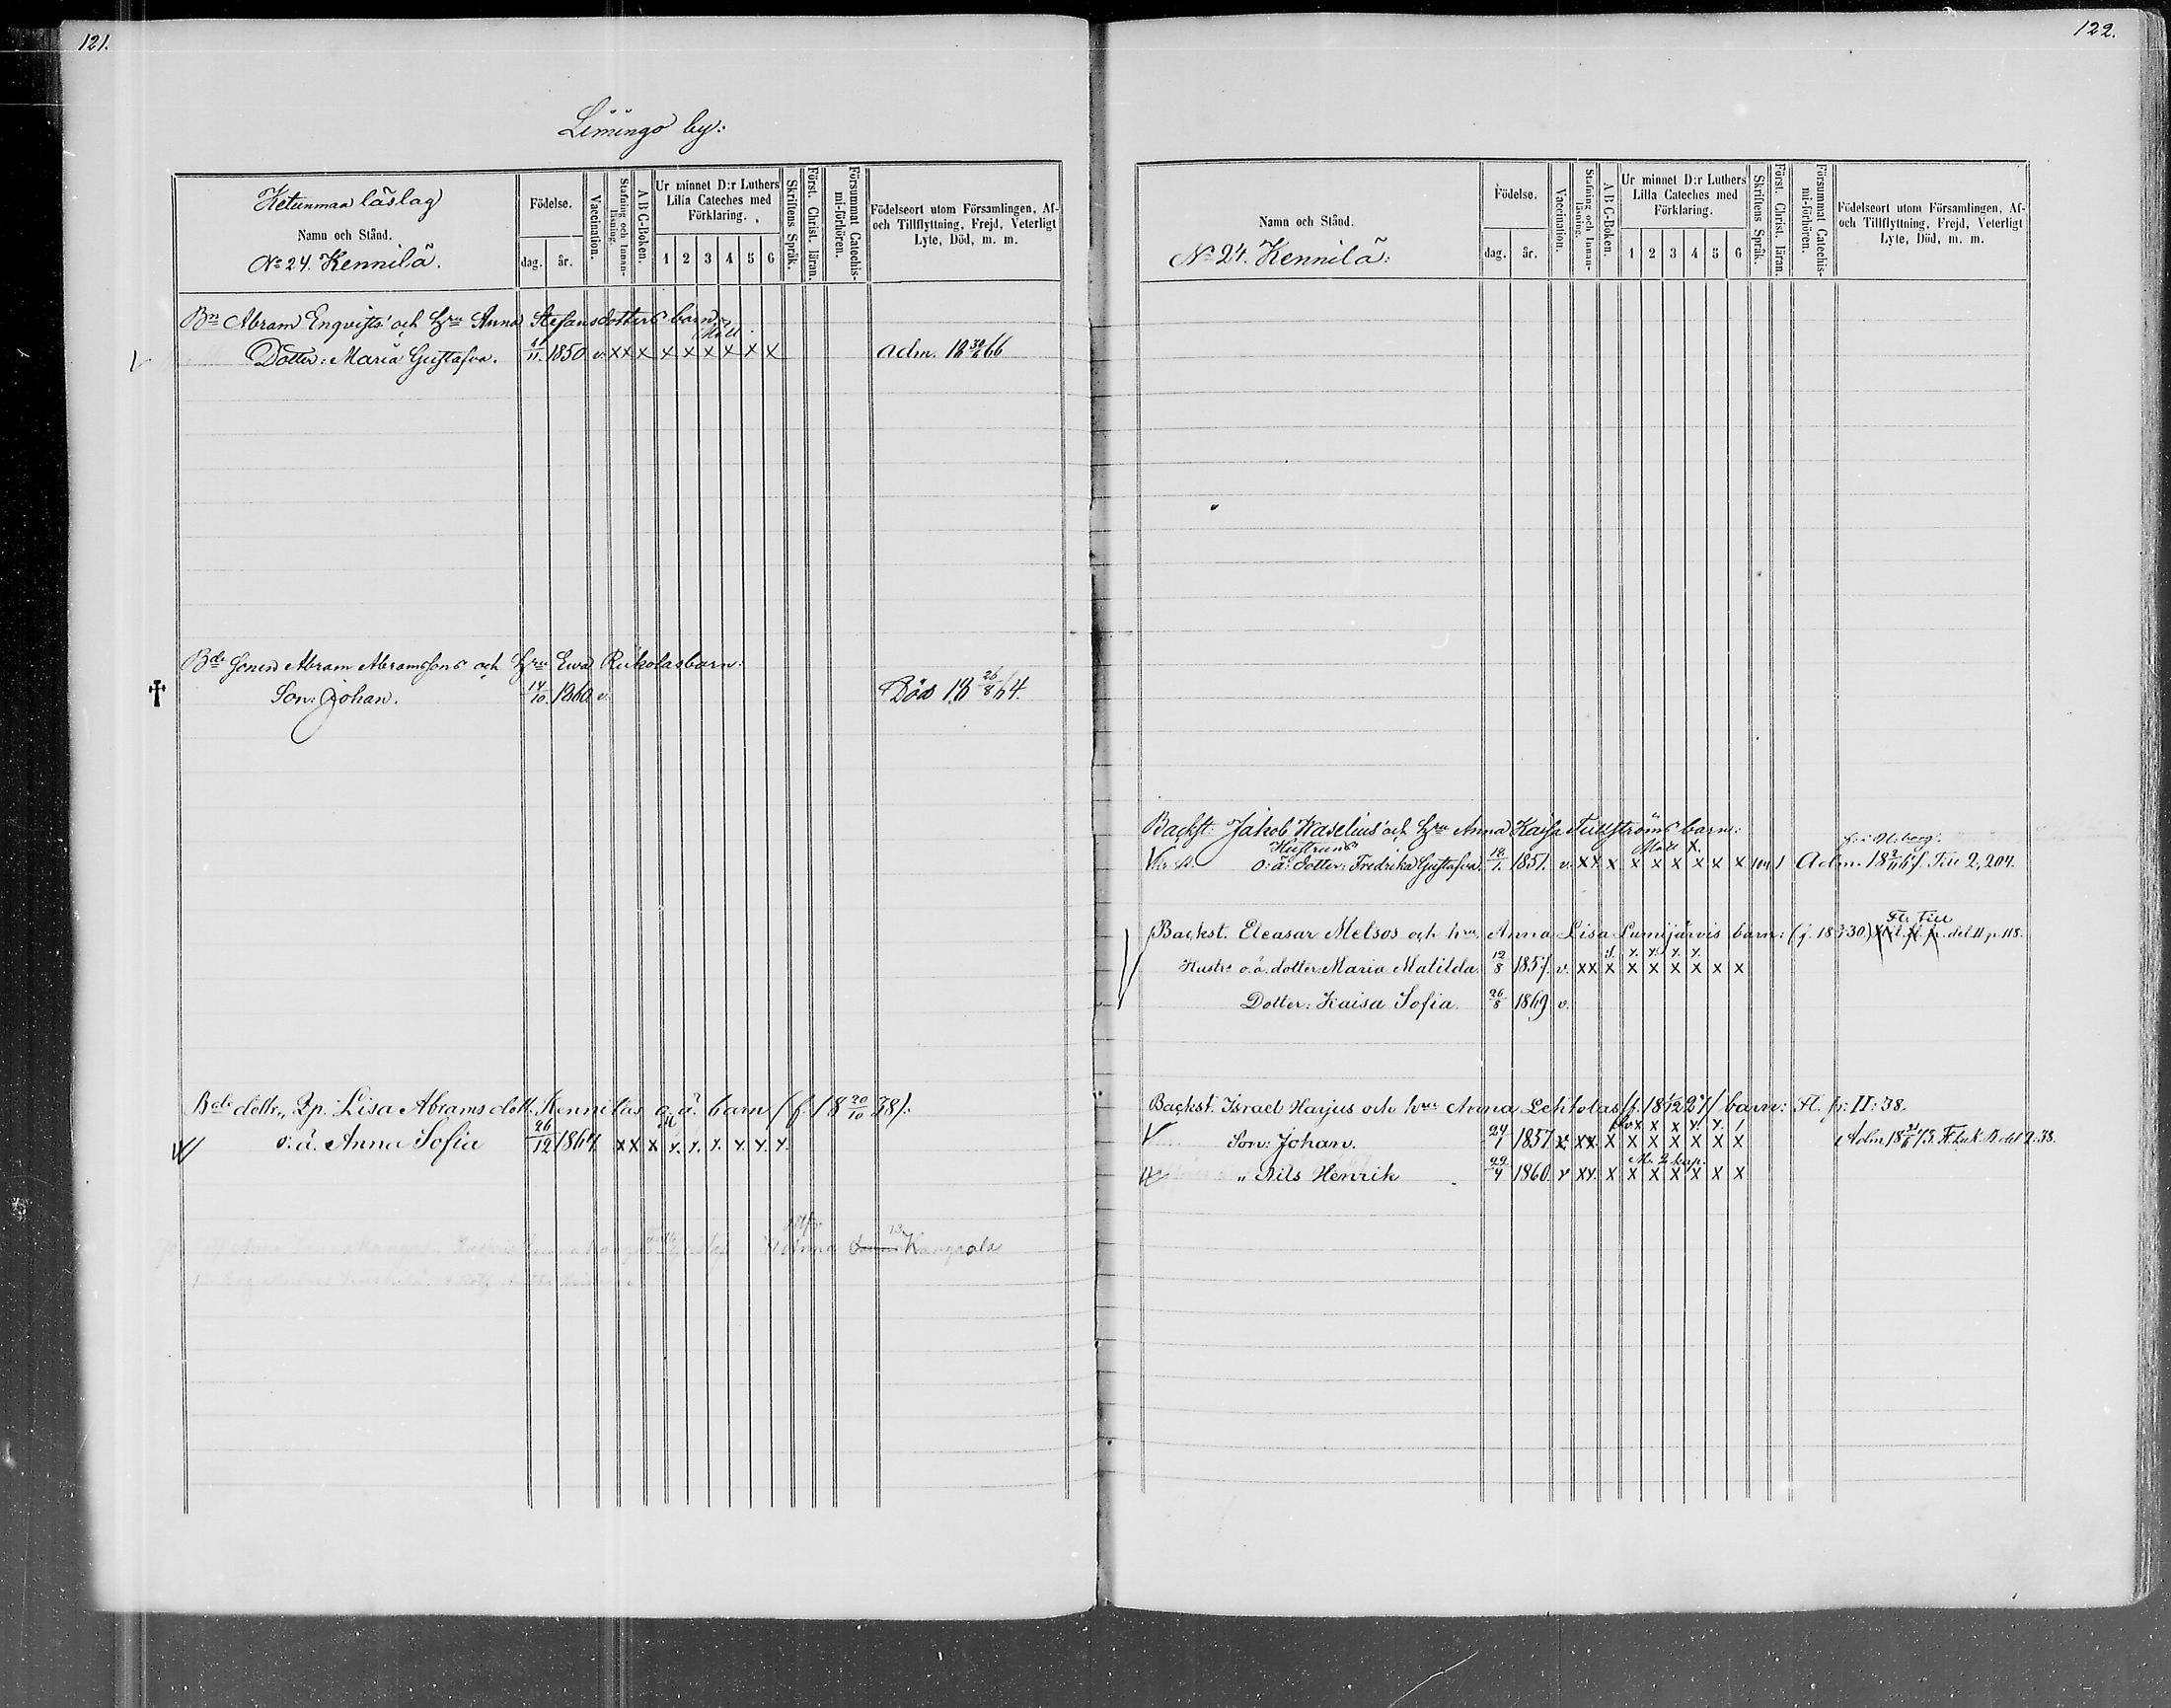 121.
Limingo by:
Ketunmaa läslag
Namn och Stånd.
No 24. Kennilä.
Födelse.
dag. år.
Vaccination.
Stafning och Innanläsning.
A B C-Boken.
Ur minnet D:r Luthers Lilla Cateches med Förklaring.
1 2 3 4 5 6
Skriftens Språk.
Först. Christ. läran.
Försummat Catechismi-förhören.
Födelseort utom Församlingen, Af- och Tillflyttning, Frejd, Veterligt Lyte, Död, m. m.
Bn Abram Enqvists och Hru Anna Stefansdotters barn:
Dotter: Maria Gustafva. 11. 1850 v. x x x x x x x x x adm. 18 30/6 66
Bde Sonen Abram Abramssons och Hru Ewa Rukolas barn:
Son: Johan. 14/10. 1860 v. Död 18 26/8 64.
Bde dottr., Qp. Lisa Abramsdott. Kennilas o. ä. barn (f. 18 20/10 38).
o. ä. Anna Sofia 26/12 1864 x x x x. x. x. x. x. x.
Anna Kangas
122.
Namn och Stånd.
No 24. Kennilä:
Födelse.
dag. år.
Vaccination.
Stafning och Innanläsning.
A B C-Boken.
Ur minnet D:r Luthers Lilla Cateches med Förklaring.
1 2 3 4 5 6
Skriftens Språk.
Först. Christ. läran.
Försummat Catechismi-förhören.
Födelseort utom Församlingen, Af- och Tillflyttning, Frejd, Veterligt Lyte, Död, m. m.
Backst. Jakob Waselius och Hru Anna Kaisa Tullströms barn:
Hustruns
o. ä. dotter: Fredrika Gustafva. 18/1. 1851. v. x x x x x x x x x Adm. 18 67 2, 204.
Fl. till
Backst. Eleasar Melsos och hru Anna Lisa Lumijärvis barn: del II, p. 118.
Hustrs o. ä. dotter: Maria Matilda. 12/8 1857. v. x x x x x x x x x
Dotter: Kaisa Sofia. 26/8 1869 v.
Backst. Israel Harjus och hru Anna Lehtolas barn: Fl. p: II: 38.
Son: Johan. 24/1 1857 x x x x x x x x x Adm 18 73. del 2. 38.
" Nils Henrik 29/4 1860. x x x x x x x x x